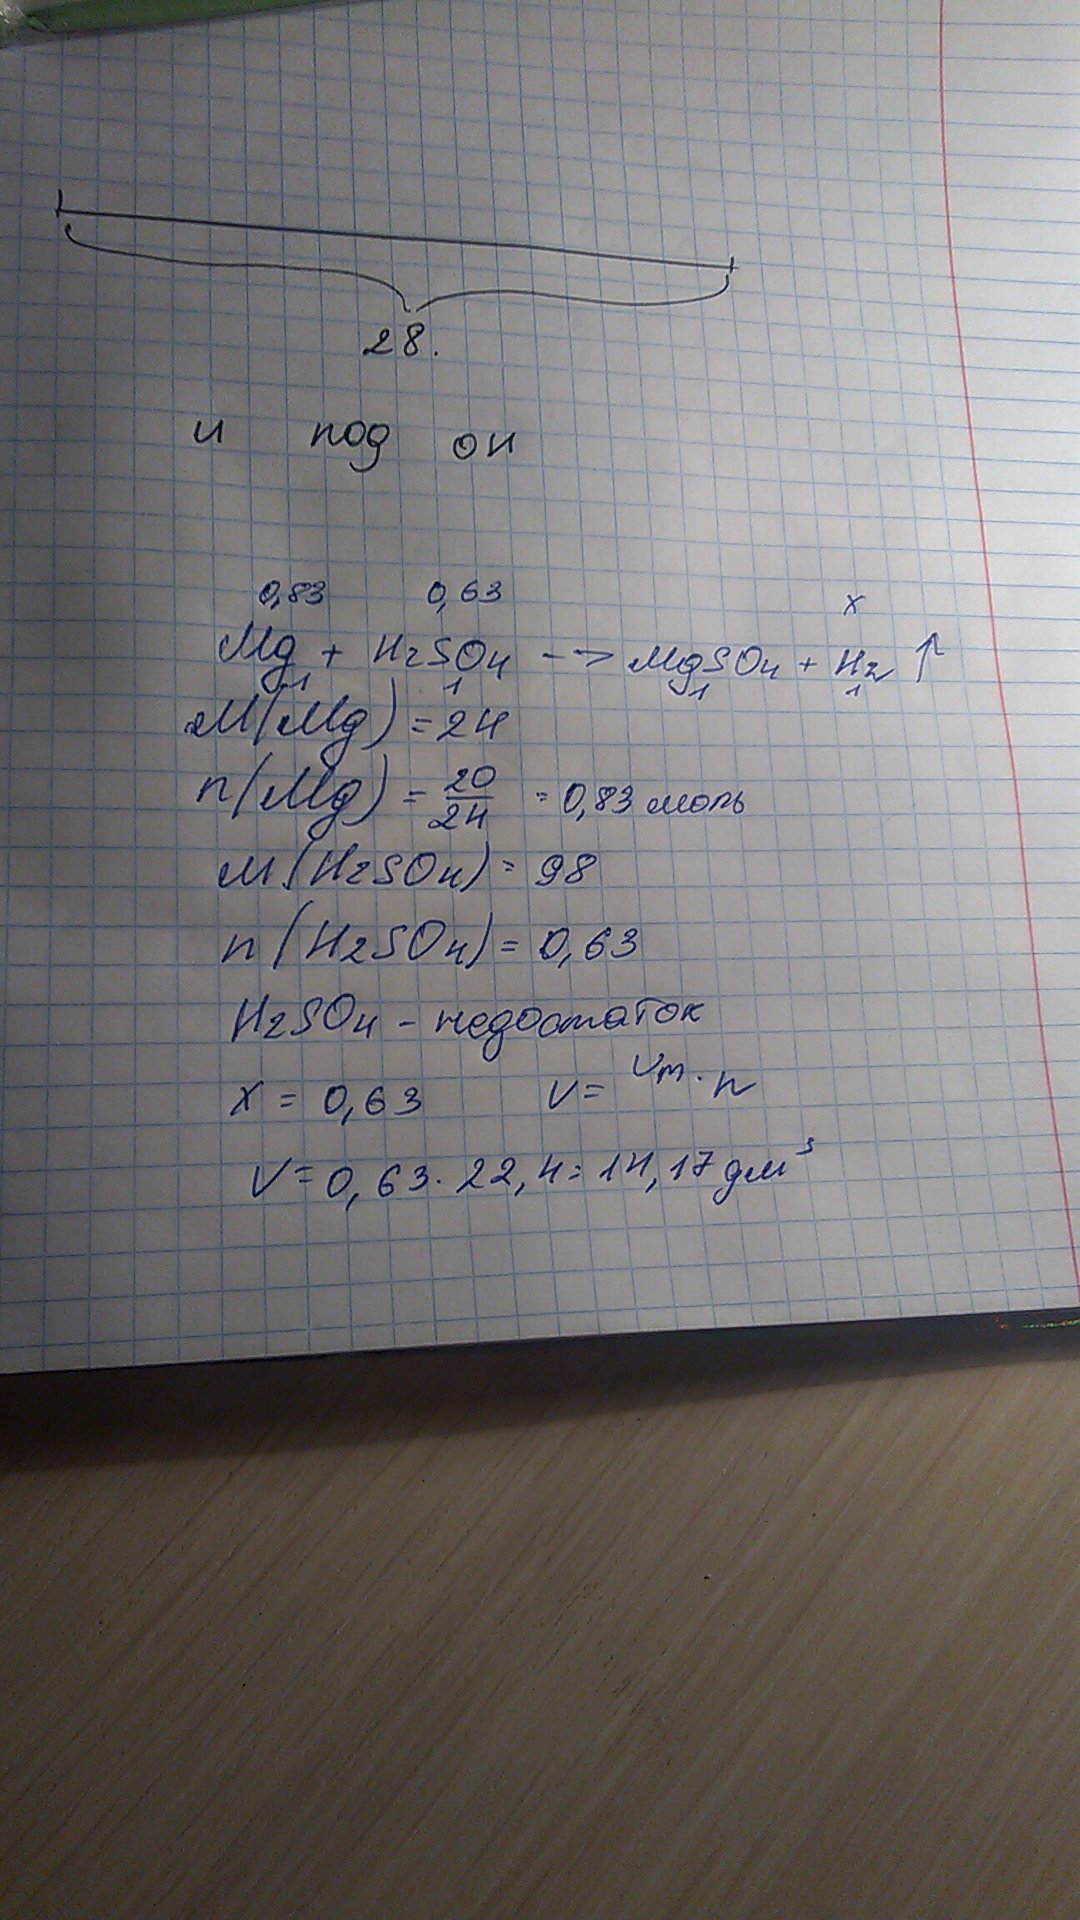 28.
и под он
0,83 0,63 x
Mg + H2SO4 --> MgSO4 + H2 ↑
1 1 1 1
M(Mg) = 24
n(Mg) = 20/24 = 0,83 моль
M(H2SO4) = 98
n(H2SO4) = 0,63
H2SO4 - недостаток
x = 0,63 V = Vm · n
V = 0,63 · 22,4 = 14,17 дм³